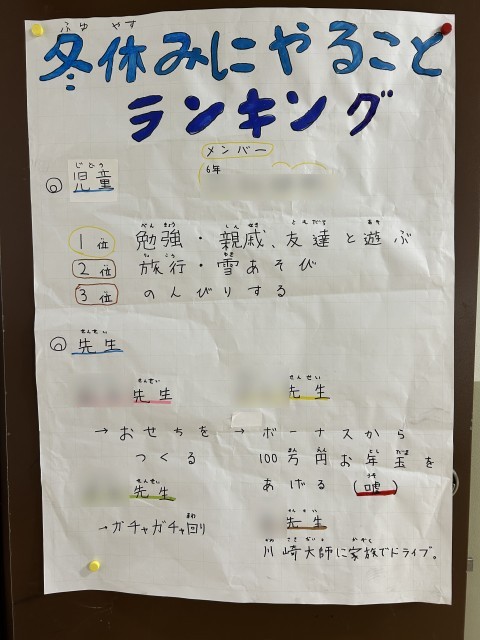 ふゆ やす
冬休みにやること
ランキング
メンバー
6年
じどう
◎ 児童
べんきょう しんせき ともだち あそ
1位 勉強・親戚、友達と遊ぶ
りょこう ゆき
2位 旅行・雪あそび
3位 のんびりする
せんせい
◎ 先生
せんせい
先生
→おせちを
つくる
せんせい
先生
→ボーナスから
まん えん としだま
100万円お年玉を
うそ
あげる (嘘)
せんせい
先生
まわ
→ガチャガチャ回り
せんせい
先生
かわさきだいし かぞく
川崎大師に家族でドライブ。